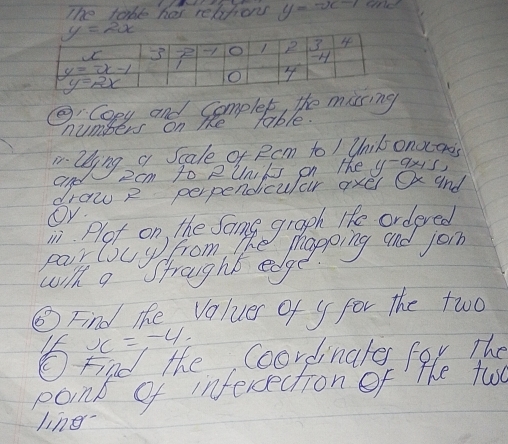 The table has relations y = -x-1 and
y = 2x
x -3 -2 -1 0 1 2 3 4
y=-x-1 1 -4
y=2x 0 4
(a) i. Copy and complete the missing
numbers on the table.
ii. Using a scale of 2cm to 1 Unit on x axis
and 2cm to 2 Units on the y-axis,
draw 2 perpendicular axes Ox and
OY.
iii. Plot on the same graph the ordered
pair (x, y) from the mapping and join
with a straight edge.
(b) Find the values of y for the two
if x = -4.
(c) Find the coordinates for the
point of intersection of the two
line.